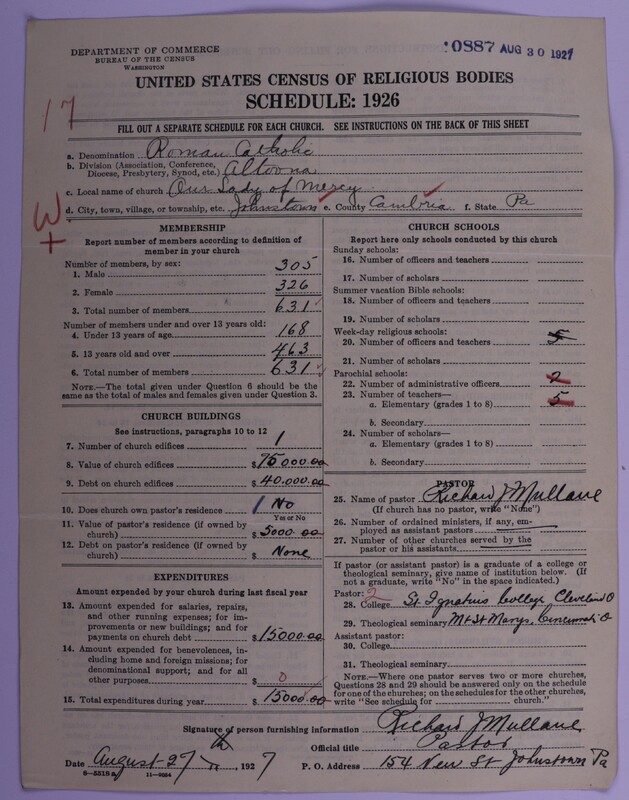 DEPARTMENT OF COMMERCE
BUREAU OF THE CENSUS
WASHINGTON
10887 AUG 30 1927
UNITED STATES CENSUS OF RELIGIOUS BODIES
SCHEDULE: 1926
17
FILL OUT A SEPARATE SCHEDULE FOR EACH CHURCH. SEE INSTRUCTIONS ON THE BACK OF THIS SHEET
a. Denomination Roman Catholic
b. Division (Association, Conference, Diocese, Presbytery, Synod, etc.) Altoona
c. Local name of church Our Lady of Mercy
d. City, town, village, or township, etc. Johnstown e. County Cambria f. State Pa
W
+
MEMBERSHIP
Report number of members according to definition of
member in your church
Number of members, by sex:
1. Male 305
2. Female 326
3. Total number of members 631
Number of members under and over 13 years old:
4. Under 13 years of age 168
5. 13 years old and over 463
6. Total number of members 631
NOTE.—The total given under Question 6 should be
same as the total of males and females given under Question 3.
CHURCH BUILDINGS
See instructions, paragraphs 10 to 12
7. Number of church edifices 1
8. Value of church edifices $75000.00
9. Debt on church edifices $40.000.00
10. Does church own pastor's residence? 1 No
Yes or No
11. Value of pastor's residence (if owned by
church) $5000.00
12. Debt on pastor's residence (if owned by
church) $ None
EXPENDITURES
Amount expended by your church during last fiscal year
13. Amount expended for salaries, repairs,
and other running expenses; for im-
provements or new buildings; and for
payments on church debt $15000.00
14. Amount expended for benevolences, in-
cluding home and foreign missions; for
denominational support; and for all
other purposes $ 0
15. Total expenditures during year $15000.00
CHURCH SCHOOLS
Report here only schools conducted by this church
Sunday schools:
16. Number of officers and teachers
17. Number of scholars
Summer vacation Bible schools:
18. Number of officers and teachers
19. Number of scholars
Week-day religious schools:
20. Number of officers and teachers 5
21. Number of scholars
Parochial schools:
22. Number of administrative officers 2
23. Number of teachers—
a. Elementary (grades 1 to 8) 5
b. Secondary
24. Number of scholars—
a. Elementary (grades 1 to 8)
b. Secondary
PASTOR
25. Name of pastor Richard J Mullane
(If church has no pastor, write "None")
26. Number of ordained ministers, if any, em-
ployed as assistant pastors
27. Number of other churches served by the
pastor or his assistants
If pastor (or assistant pastor) is a graduate of a college or
theological seminary, give name of institution below. (If
not a graduate, write "No" in the space indicated.)
Pastor: 2
28. College St Ignatius College Cleveland O
29. Theological seminary Mt St Marys, Cincinnati O
Assistant pastor:
30. College
31. Theological seminary
NOTE.—Where one pastor serves two or more churches,
Questions 28 and 29 should be answered only on the schedule
for one of the churches; on the schedules for the other churches,
write "See schedule for church."
Signature of person furnishing information Richard J Mullane
Official title Pastor
Date August 27th, 1927 P. O. Address 154 New St Johnstown Pa
8—5518a 11—9054